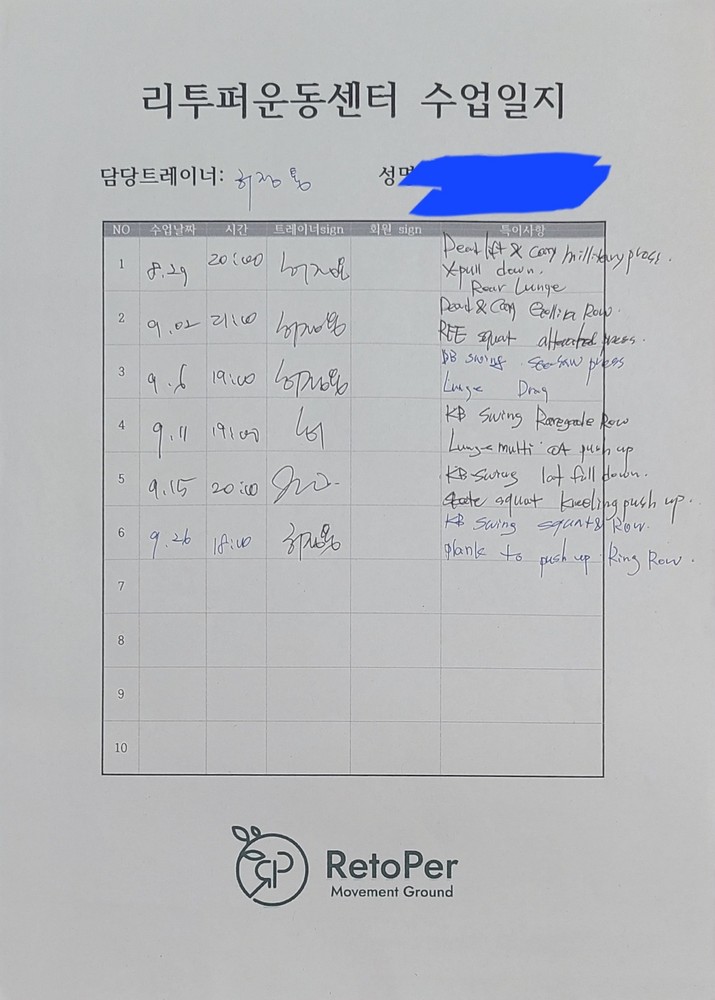 리투퍼운동센터 수업일지
담당트레이너: 허정웅 성명
NO 수업날짜 시간 트레이너sign 회원 sign 특이사항
1 8.29 20:00 Dead lift & Carry millitary press.
X-pull down.
Rear Lunge
2 9.02 21:00 Dead & Carry Row.
squat press.
3 9.6 19:00 DB swing. see-saw press
Lunge Drag
4 9.11 19:00 KB Swing Renegade Row
Lunge multi push up
5 9.15 20:00 KB Swing lat full down.
squat kneeling push up.
6 9.26 18:00 KB Swing squat & Row.
plank to push up Ring Row.
7
8
9
10
RetoPer
Movement Ground